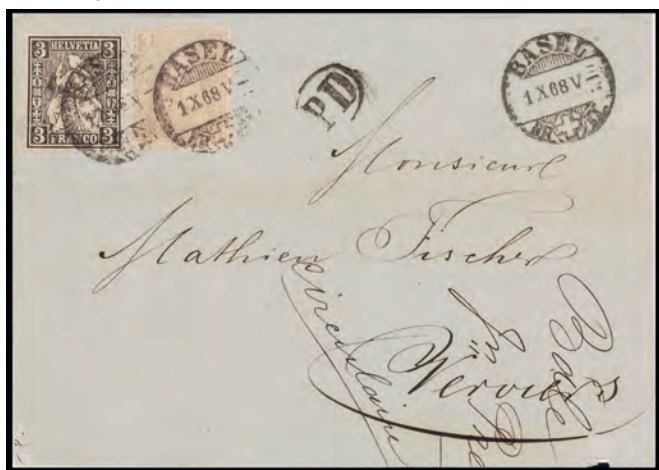 3 HELVETIA 3
3 FRANCO 3
BASEL
1 X 68 V
PD
BASEL
1 X 68 V
Monsieur
Mathieu Fischer
Verviers
circulaire